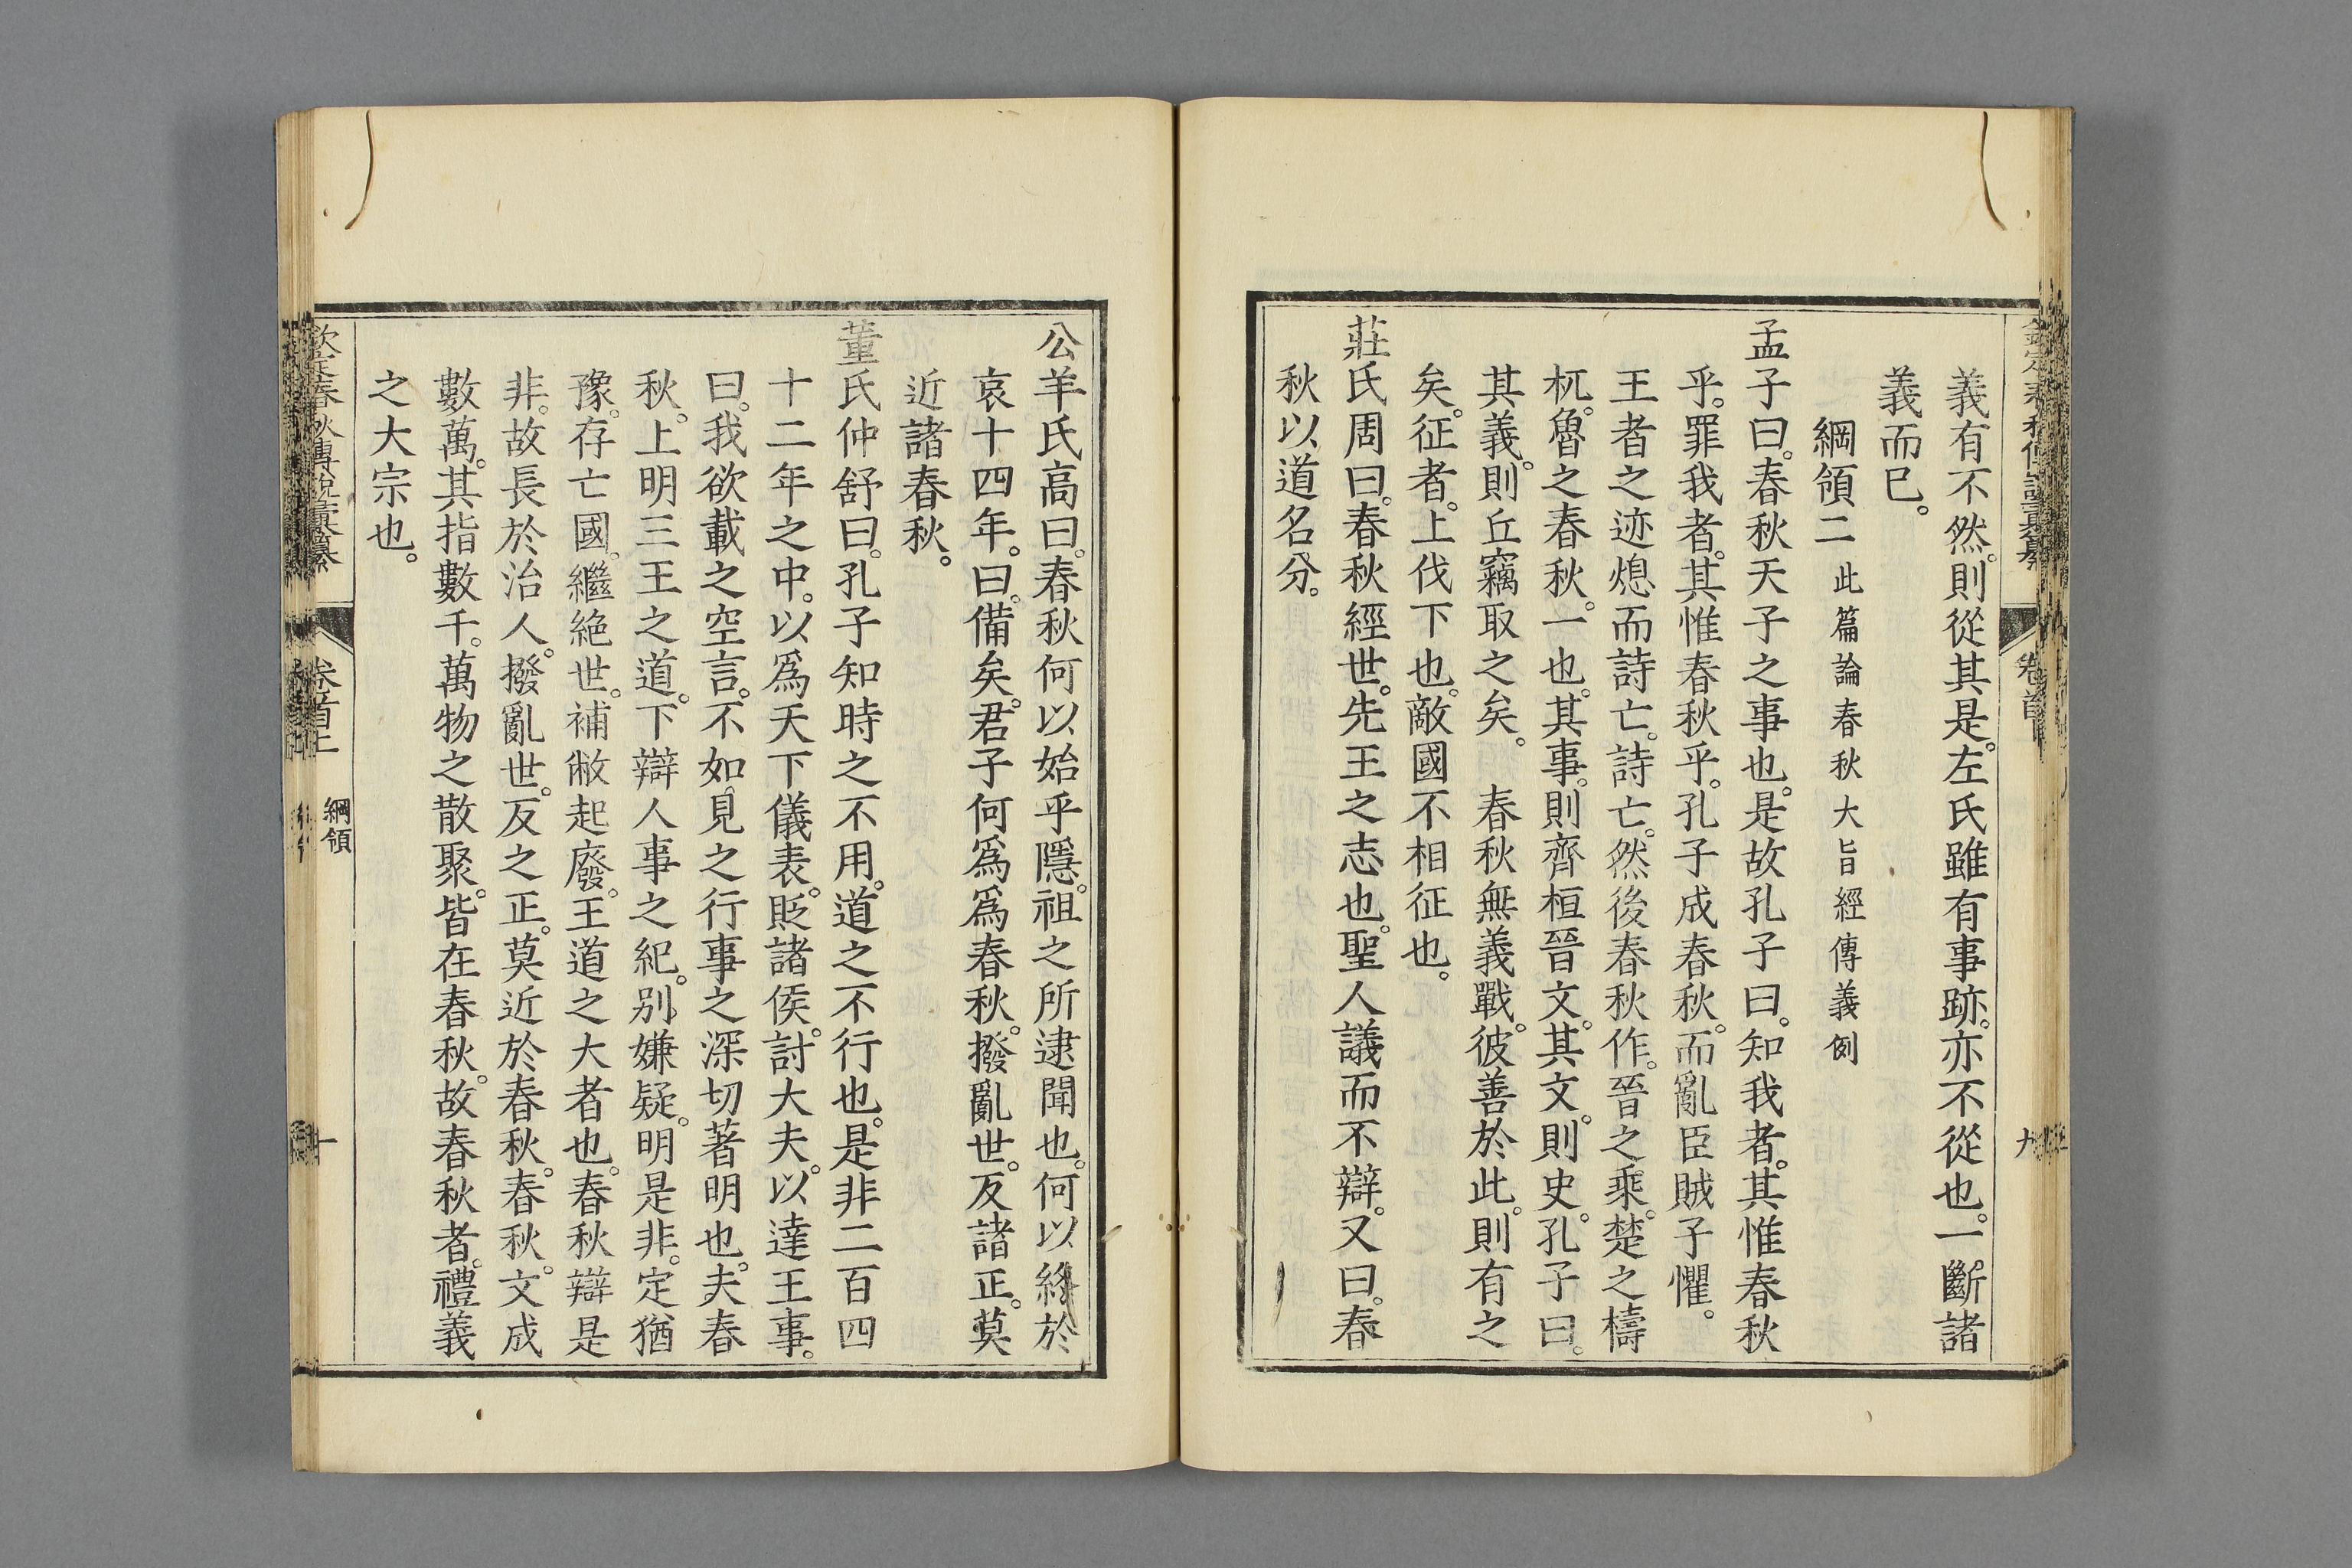 義有不然。則從其是。左氏雖有事跡。亦不從也。一斷諸
義而已。
綱領二 此篇論春秋大旨經傳義例
孟子曰。春秋天子之事也。是故孔子曰。知我者。其惟春秋
乎。罪我者。其惟春秋乎。孔子成春秋。而亂臣賊子懼。
王者之迹熄而詩亡。詩亡。然後春秋作。晉之乘。楚之檮
杌。魯之春秋。一也。其事。則齊桓晉文。其文。則史。孔子曰。
其義。則丘竊取之矣。 春秋無義戰。彼善於此。則有之
矣。征者。上伐下也。敵國不相征也。
莊氏周曰。春秋經世。先王之志也。聖人議而不辯。又曰。春
秋以道名分。
公羊氏高曰。春秋何以始乎隱。祖之所逮聞也。何以終於
哀十四年。曰。備矣。君子何爲爲春秋。撥亂世。反諸正。莫
近諸春秋。
董氏仲舒曰。孔子知時之不用。道之不行也。是非二百四
十二年之中。以爲天下儀表。貶諸侯。討大夫。以達王事。
曰。我欲載之空言。不如見之行事之深切著明也。夫春
秋。上明三王之道。下辯人事之紀。别嫌疑。明是非。定猶
豫。存亡國。繼絶世。補敝起廢。王道之大者也。春秋辯是
非。故長於治人。撥亂世。反之正。莫近於春秋。春秋。文成
數萬。其指數千。萬物之散聚。皆在春秋。故春秋者。禮義
之大宗也。
欽定春秋傳說彙纂
卷首上 綱領
十